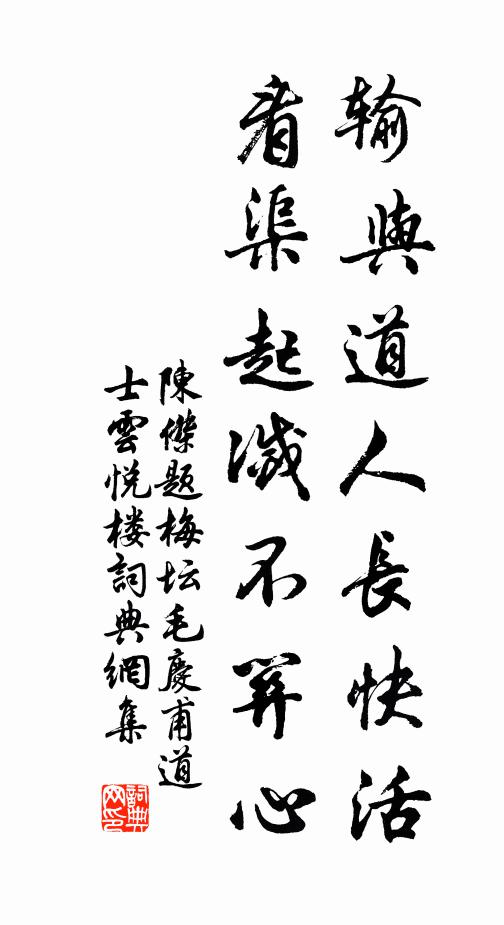 輸與道人長快活
看渠起滅不關心
陳傑题梅坛毛慶甫道
士雲悦楼詞典網集
詞典
网印